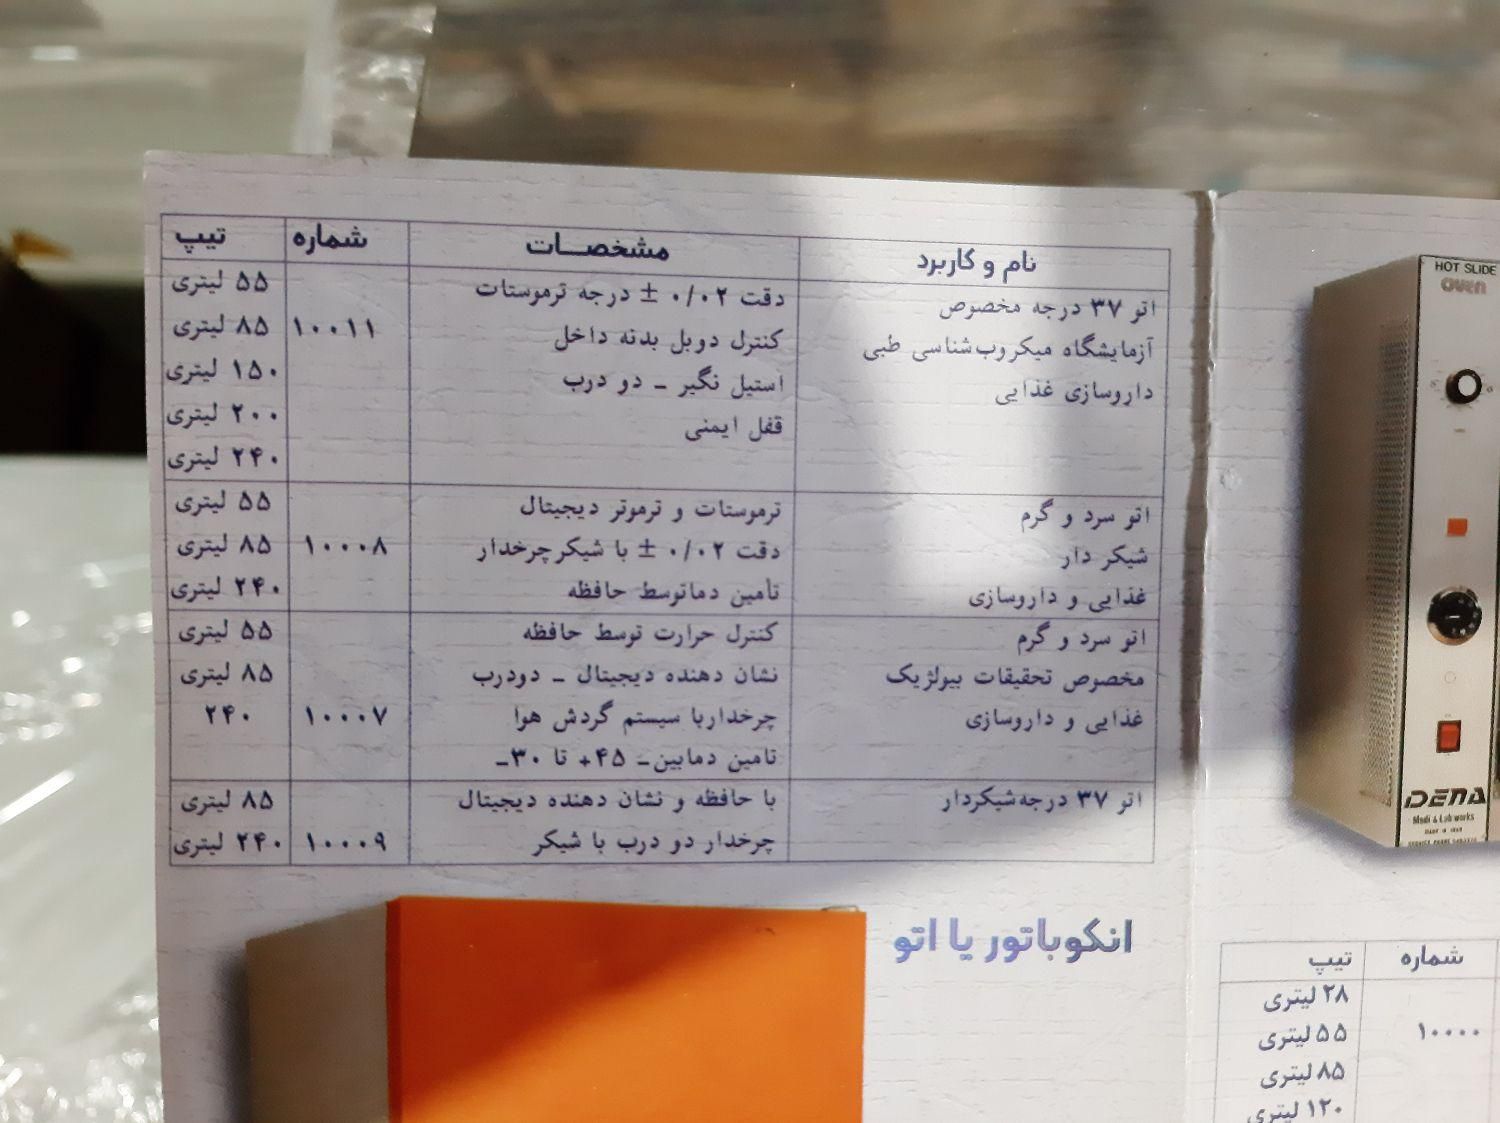 نام و کاربرد مشخصـــات شماره تیپ
اتو ۳۷ درجه مخصوص دقت ۰/۰۲ ± درجه ترموستات ۵۵ لیتری
آزمایشگاه میکروب‌شناسی طبی کنترل دوبل بدنه داخل ۱۰۰۱۱ ۸۵ لیتری
داروسازی غذایی استیل نگیر ـ دو درب ۱۵۰ لیتری
قفل ایمنی ۲۰۰ لیتری
۲۴۰ لیتری
اتو سرد و گرم ترموستات و ترموتر دیجیتال ۵۵ لیتری
شیکر دار دقت ۰/۰۲ ± با شیکرچرخدار ۱۰۰۰۸ ۸۵ لیتری
غذایی و داروسازی تأمین دماتوسط حافظه ۲۴۰ لیتری
اتو سرد و گرم کنترل حرارت توسط حافظه ۵۵ لیتری
مخصوص تحقیقات بیولژیک نشان دهنده دیجیتال ـ دودرب ۸۵ لیتری
غذایی و داروسازی چرخداربا سیستم گردش هوا ۱۰۰۰۷ ۲۴۰
تامین دمابین ـ ۴۵+ تا ۳۰ـ
اتو ۳۷ درجه‌شیکردار با حافظه و نشان دهنده دیجیتال ۸۵ لیتری
چرخدار دو درب با شیکر ۱۰۰۰۹ ۲۴۰ لیتری
انکوباتور یا اتو
HOT SLIDE
OVEN
DENA
Medi & Lab works
MADE IN IRAN
شماره تیپ
۲۸ لیتری
۱۰۰۰۰ ۵۵ لیتری
۸۵ لیتری
۱۲۰ لیتری